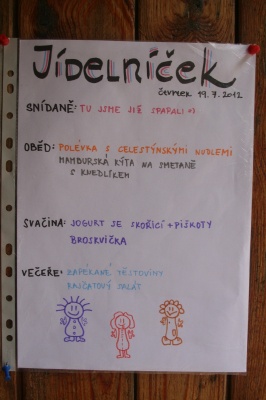 Jídelníček
čtvrtek 19.7.2012
SNÍDANĚ: TU JSME JIŽ SPAPALI :)
OBĚD: POLÉVKA S CELESTÝNSKÝMI NUDLEMI
HAMBURSKÁ KÝTA NA SMETANĚ
S KNEDLÍKEM
SVAČINA: JOGURT SE SKOŘICÍ + PIŠKOTY
BROSKVIČKA
VEČEŘE: ZAPÉKANÉ TĚSTOVINY
RAJČATOVÝ SALÁT